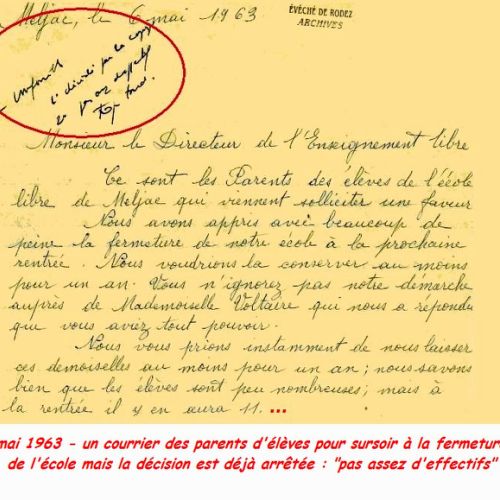 Meljac, le 6 mai 1963
ÉVÊCHÉ DE RODEZ
ARCHIVES
Monsieur le Directeur de l'Enseignement libre
Ce sont les Parents des élèves de l'école
libre de Meljac qui viennent solliciter une faveur
Nous avons appris avec beaucoup de
peine la fermeture de notre école à la prochaine
rentrée. Nous voudrions la conserver au moins
pour un an. Vous n'ignorez pas notre démarche
auprès de Mademoiselle Voltaire qui nous a répondu
que vous aviez tout pouvoir.
Nous vous prions instamment de nous laisser
ces demoiselles au moins pour un an ; nous savons
bien que les élèves sont peu nombreuses ; mais à
la rentrée il y en aura 11. ...
mai 1963 - un courrier des parents d'élèves pour sursoir à la fermeture
de l'école mais la décision est déjà arrêtée : "pas assez d'effectifs"